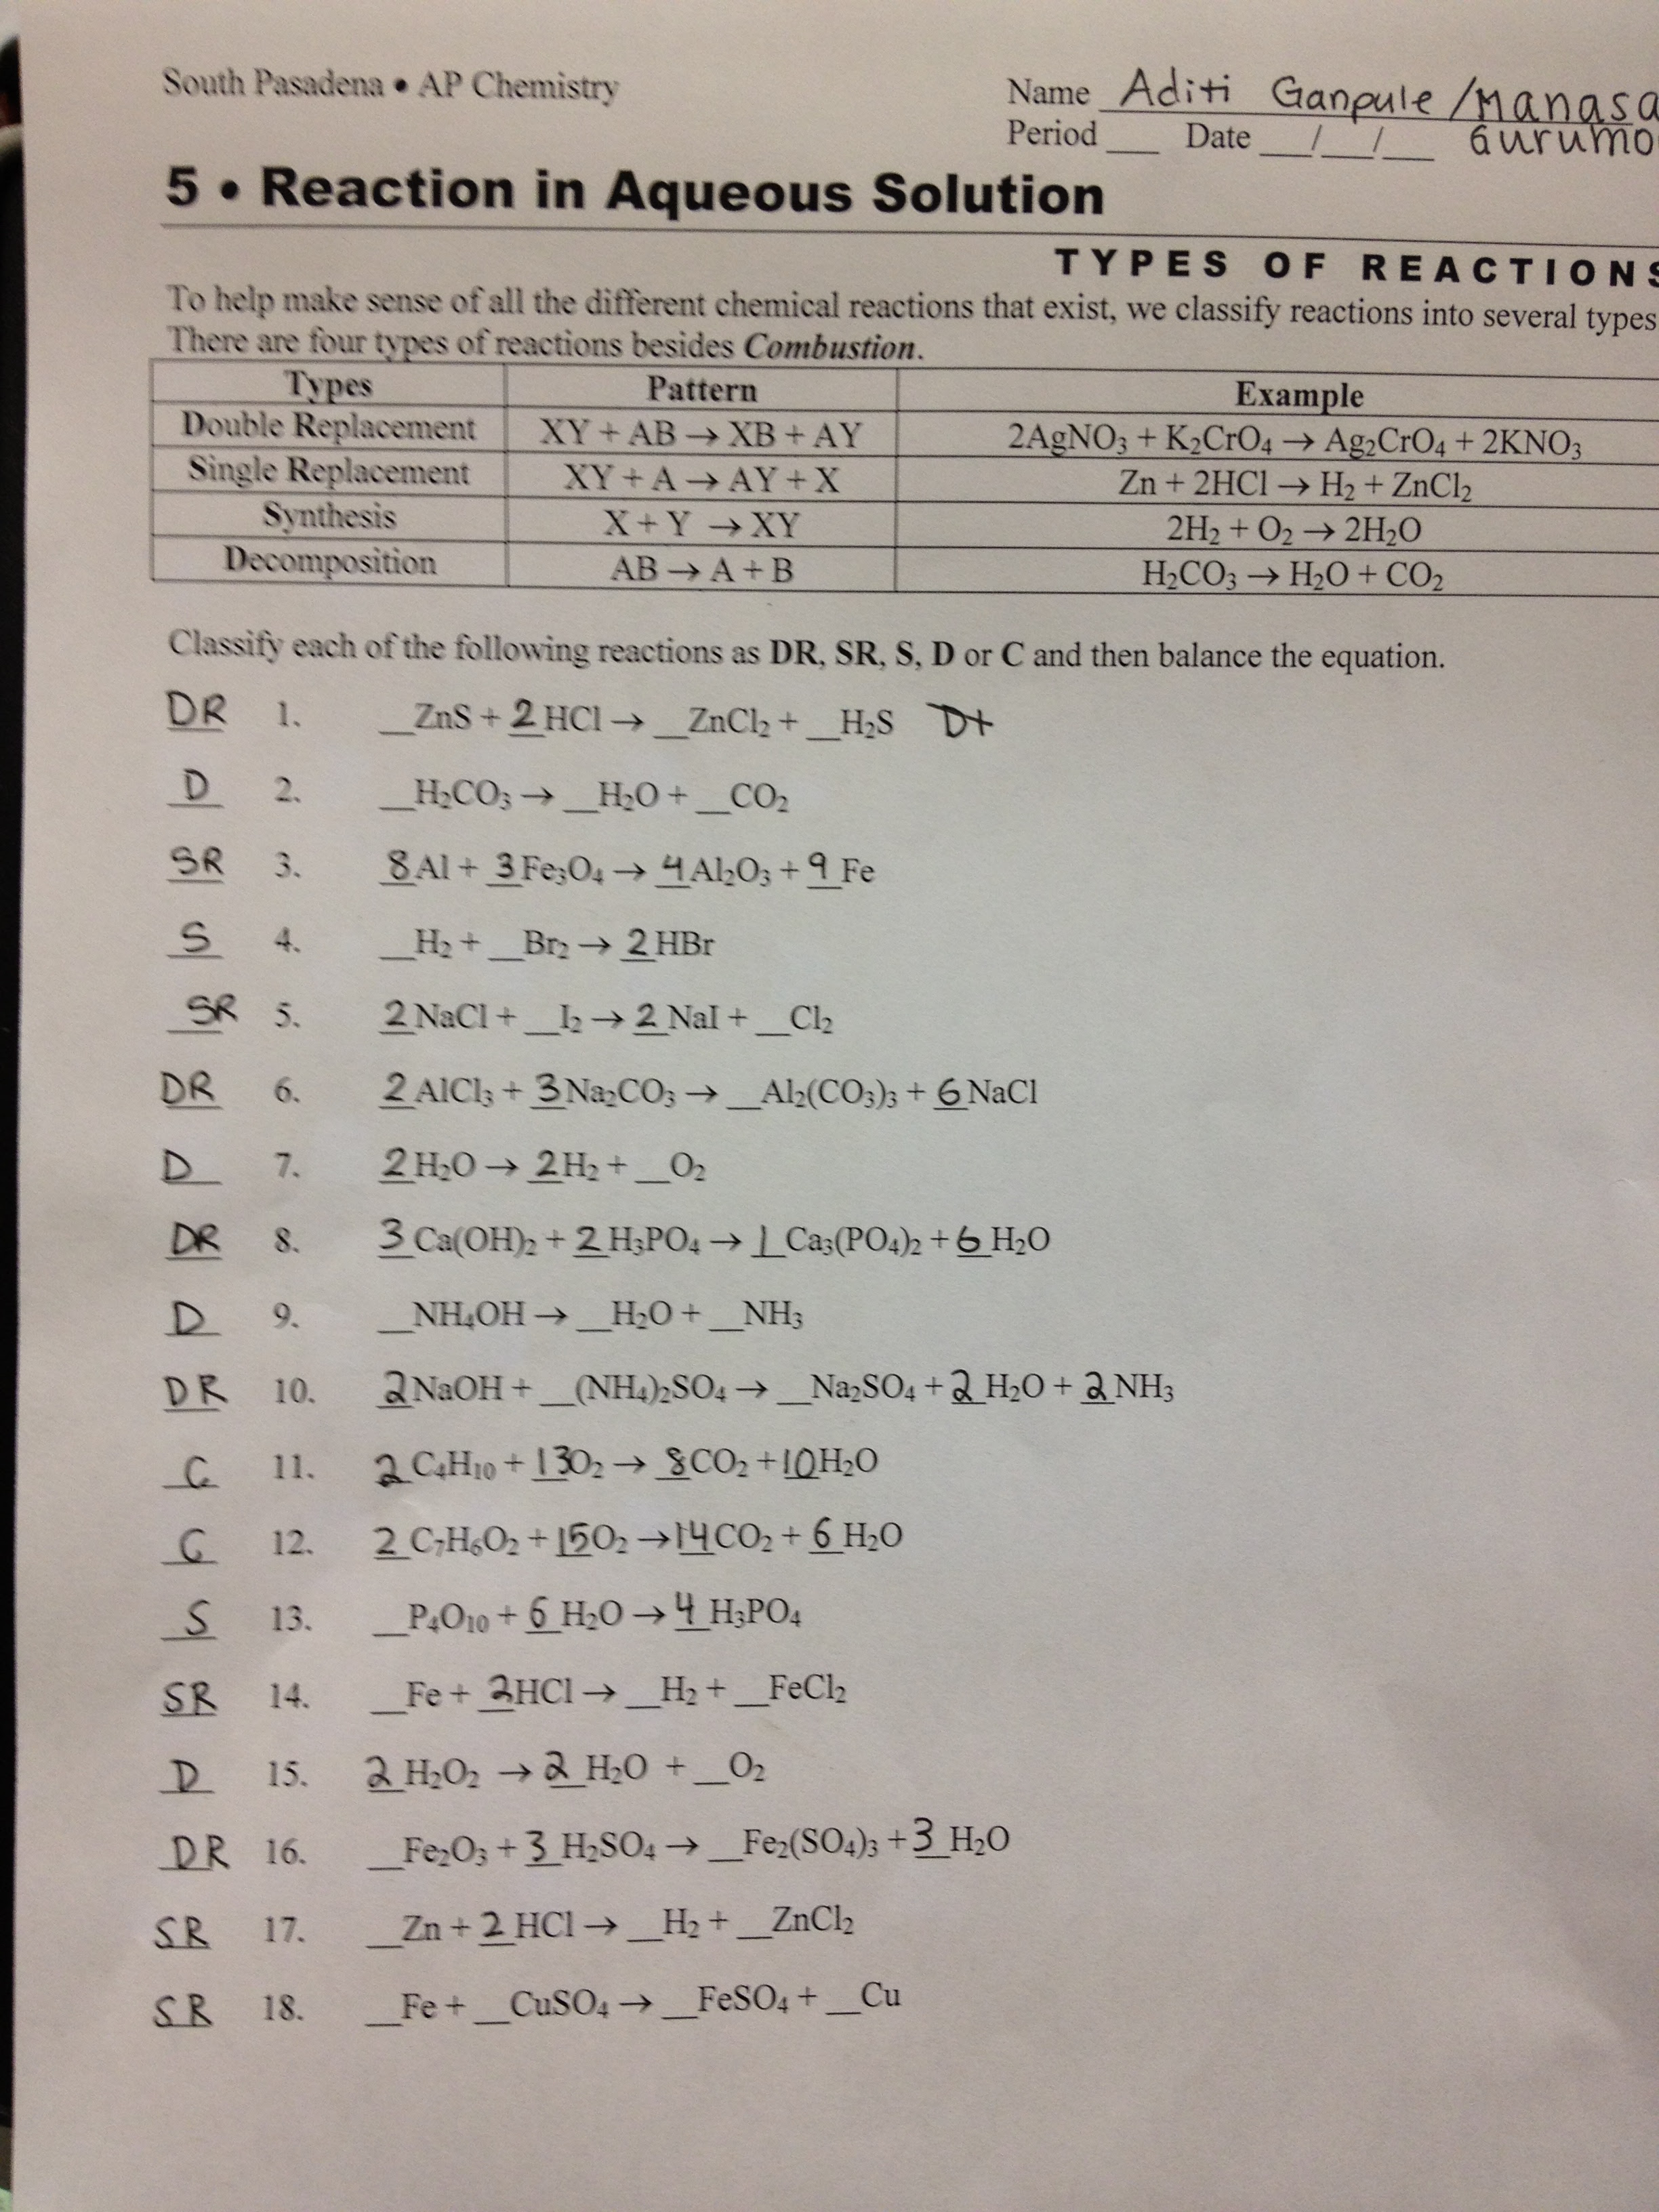 South Pasadena • AP Chemistry
Name Aditi Ganpule / Manasa
Period ___ Date ___/___/___ Gurumo
5 • Reaction in Aqueous Solution
TYPES OF REACTIONS
To help make sense of all the different chemical reactions that exist, we classify reactions into several types
There are four types of reactions besides Combustion.
Types Pattern Example
Double Replacement XY + AB → XB + AY 2AgNO₃ + K₂CrO₄ → Ag₂CrO₄ + 2KNO₃
Single Replacement XY + A → AY + X Zn + 2HCl → H₂ + ZnCl₂
Synthesis X + Y → XY 2H₂ + O₂ → 2H₂O
Decomposition AB → A + B H₂CO₃ → H₂O + CO₂
Classify each of the following reactions as DR, SR, S, D or C and then balance the equation.
DR 1. __ZnS + 2 HCl → __ZnCl₂ + __H₂S D+
D 2. __H₂CO₃ → __H₂O + __CO₂
SR 3. 8 Al + 3 Fe₃O₄ → 4 Al₂O₃ + 9 Fe
S 4. __H₂ + __Br₂ → 2 HBr
SR 5. 2 NaCl + __I₂ → 2 NaI + __Cl₂
DR 6. 2 AlCl₃ + 3 Na₂CO₃ → __Al₂(CO₃)₃ + 6 NaCl
D 7. 2 H₂O → 2 H₂ + __O₂
DR 8. 3 Ca(OH)₂ + 2 H₃PO₄ → 1 Ca₃(PO₄)₂ + 6 H₂O
D 9. __NH₄OH → __H₂O + __NH₃
DR 10. 2 NaOH + __(NH₄)₂SO₄ → __Na₂SO₄ + 2 H₂O + 2 NH₃
C 11. 2 C₄H₁₀ + 13 O₂ → 8 CO₂ + 10 H₂O
C 12. 2 C₇H₆O₂ + 15 O₂ → 14 CO₂ + 6 H₂O
S 13. __P₄O₁₀ + 6 H₂O → 4 H₃PO₄
SR 14. __Fe + 2 HCl → __H₂ + __FeCl₂
D 15. 2 H₂O₂ → 2 H₂O + __O₂
DR 16. __Fe₂O₃ + 3 H₂SO₄ → __Fe₂(SO₄)₃ + 3 H₂O
SR 17. __Zn + 2 HCl → __H₂ + __ZnCl₂
SR 18. __Fe + __CuSO₄ → __FeSO₄ + __Cu